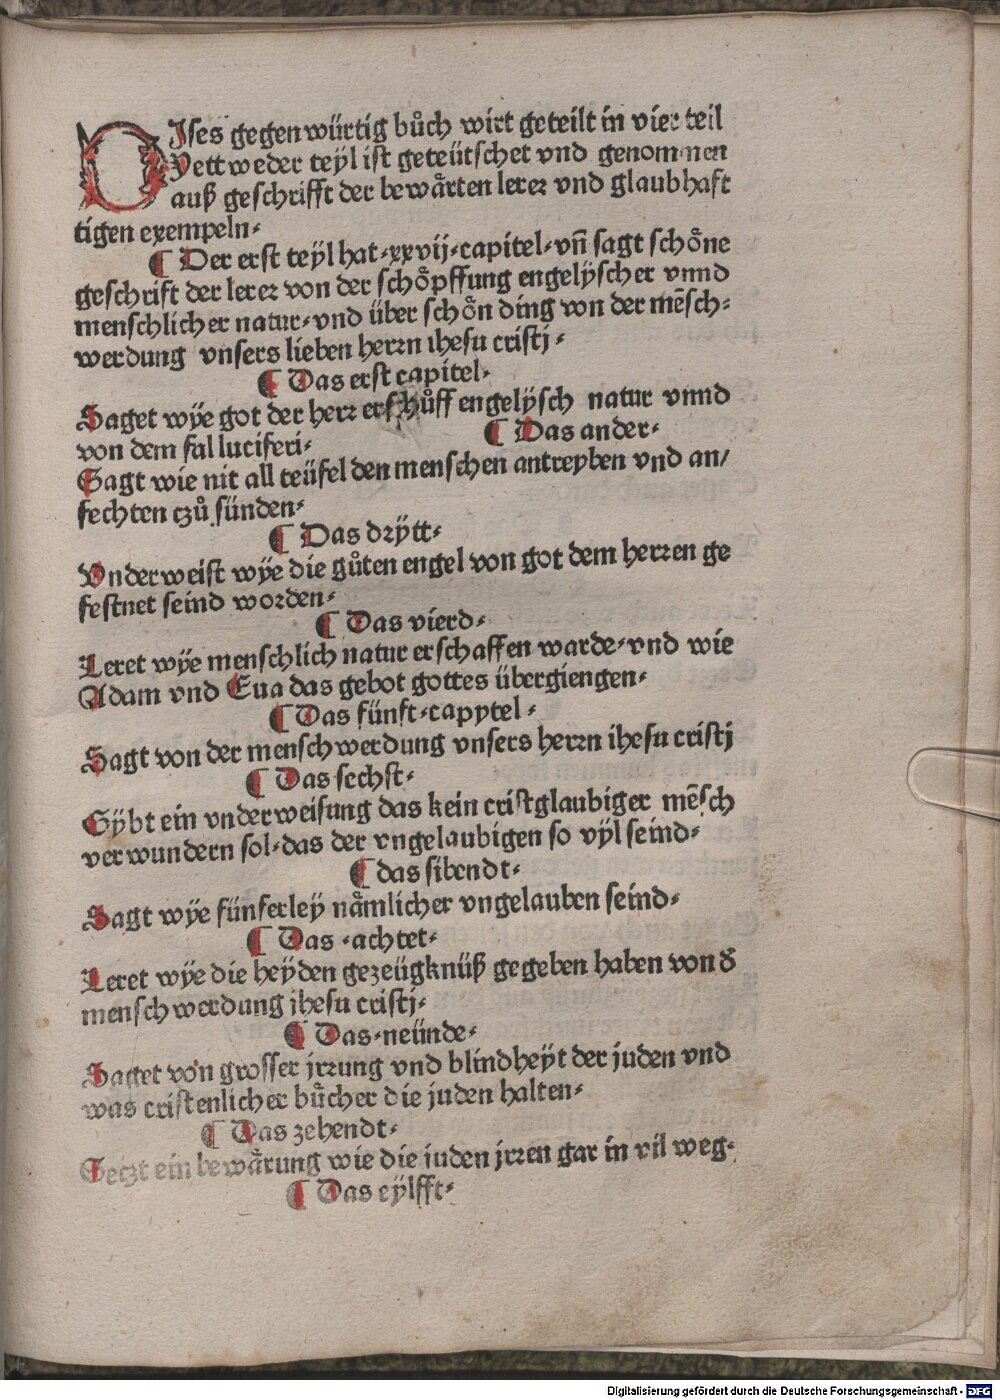 DJses gegenwürtig bůch wirt geteilt in vier teil
Yettweder teyl ist geteütschet vnd genommen
auß geschrifft der bewårten lerer vnd glaubhaft
tigen exempeln·
¶ Der erst teyl hat·xxvij·capitel·vñ sagt schỏne
geschrift der lerer von der schỏpffung engelÿscher vnnd
menschlicher natur·vnd über schỏn ding von der mẽsch⸗
werdung vnsers lieben herrn ihesu cristj·
¶ Das erst capitel·
Saget wÿe got der herr erschůff engelÿsch natur vnnd
von dem fal luciferi· ¶ Das ander·
Sagt wie nit all teüfel den menschen antreyben vnd an/
fechten czů sünden·
¶ Das drÿtt·
Vnderweist wÿe die gůten engel von got dem herren ge
festnet seind worden·
¶ Das vierd·
Leret wÿe menschlich natur erschaffen warde·vnd wie
Adam vnd Eua das gebot gottes übergiengen·
¶ Das fünft·capytel·
Sagt von der menschwerdung vnsers herrn ihesu cristj
¶ Das sechst·
Gÿbt ein vnderweisung das kein cristglaubiger mẽsch
verwundern sol·das der vngelaubigen so vÿl seind·
¶ das sibendt·
Sagt wÿe fünferleÿ nåmlicher vngelauben seind·
¶ Das ·achtet·
Leret wÿe die heÿden gezeügknüß gegeben haben von đ
menschwerdung jhesu cristj·
¶ Das·neünde·
Saget von grosser jrrung vnd blindheÿt der juden vnd
was cristenlicher bůcher die juden halten·
¶ Das zehendt·
Seczt ein bewårung wie die juden jrren gar in vil weg·
¶ Das eÿlfft·
Digitalisierung gefördert durch die Deutsche Forschungsgemeinschaft - DFG